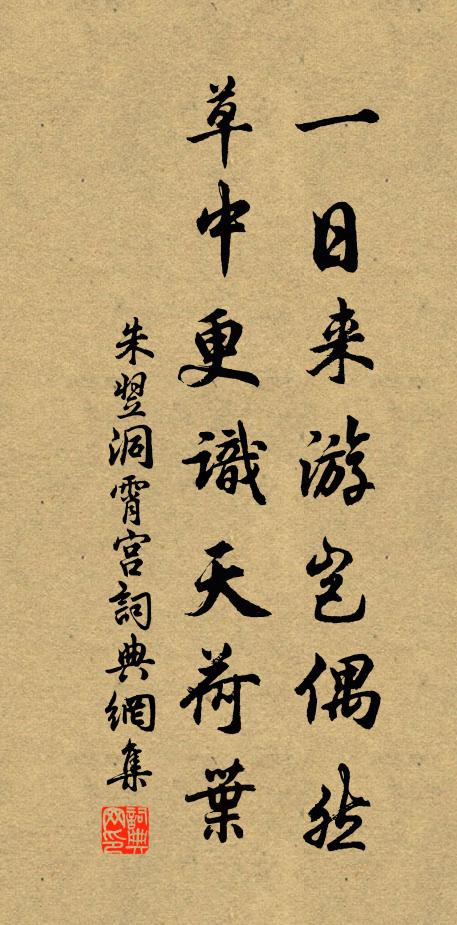 一日来游岂偶然
草中更識天荷葉
朱翌洞霄宫詞典網集